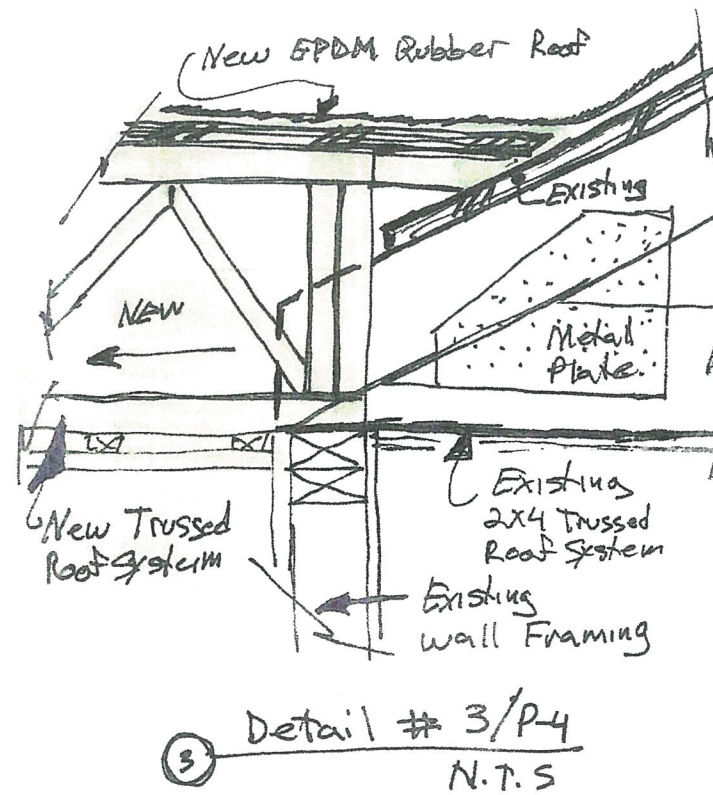 New EPDM Rubber Roof
Existing
NEW
Metal
Plate.
New Trussed
Roof System
Existing
2x4 Trussed
Roof System
Existing
Wall Framing
3
Detail # 3/P-4
N.T.S